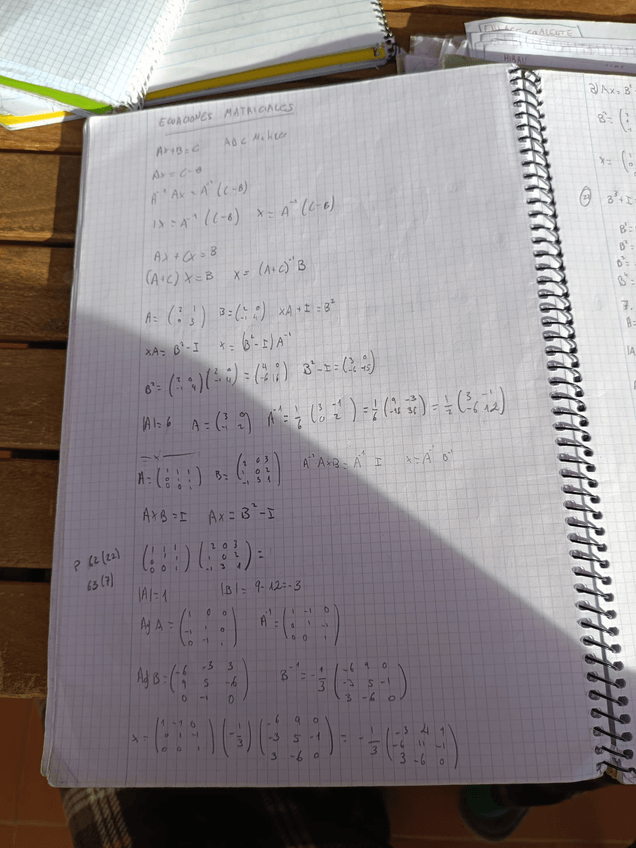 ECUACIONES MATRICIALES
AX+B=C
AX = C-B
A⁻¹ AX = A⁻¹ (C-B)
IX = A⁻¹ (C-B) X = A⁻¹ (C-B)
AX + CX = B
(A+C) X = B X = (A+C)⁻¹ B
A = (2 1 / 0 3) B = (2 0 / -1 4) XA + I = B²
XA = B² - I X = (B² - I) A⁻¹
B² = (2 0 / -1 4) (2 0 / -1 4) = (4 0 / -6 16) B² - I = (3 0 / -6 15)
|A| = 6
A = (1 1 1 / 0 1 1 / 0 0 1) B = (2 0 3 / 1 0 2 / -1 3 1) A⁻¹ AXB = A⁻¹ I X = A⁻¹ B⁻¹
AXB = I AX = B² - I
P 62 (22)
63 (7)
(1 1 1 / 0 1 1 / 0 0 1) (2 0 3 / 1 0 2 / -1 3 1) =
|A| = 1 |B| = 9-12 = -3
Adj A = (1 0 0 / -1 1 0 / 0 -1 1) A⁻¹ = (1 -1 0 / 0 1 -1 / 0 0 1)
Adj B = (-6 -3 3 / 9 5 -6 / 0 -1 0) B⁻¹ = -1/3 (-6 9 0 / -3 5 -1 / 3 -6 0)
X = (1 -1 0 / 0 1 -1 / 0 0 1) (-1/3) (-6 9 0 / -3 5 -1 / 3 -6 0) = -1/3 (-3 4 1 / -6 11 -1 / 3 -6 0)